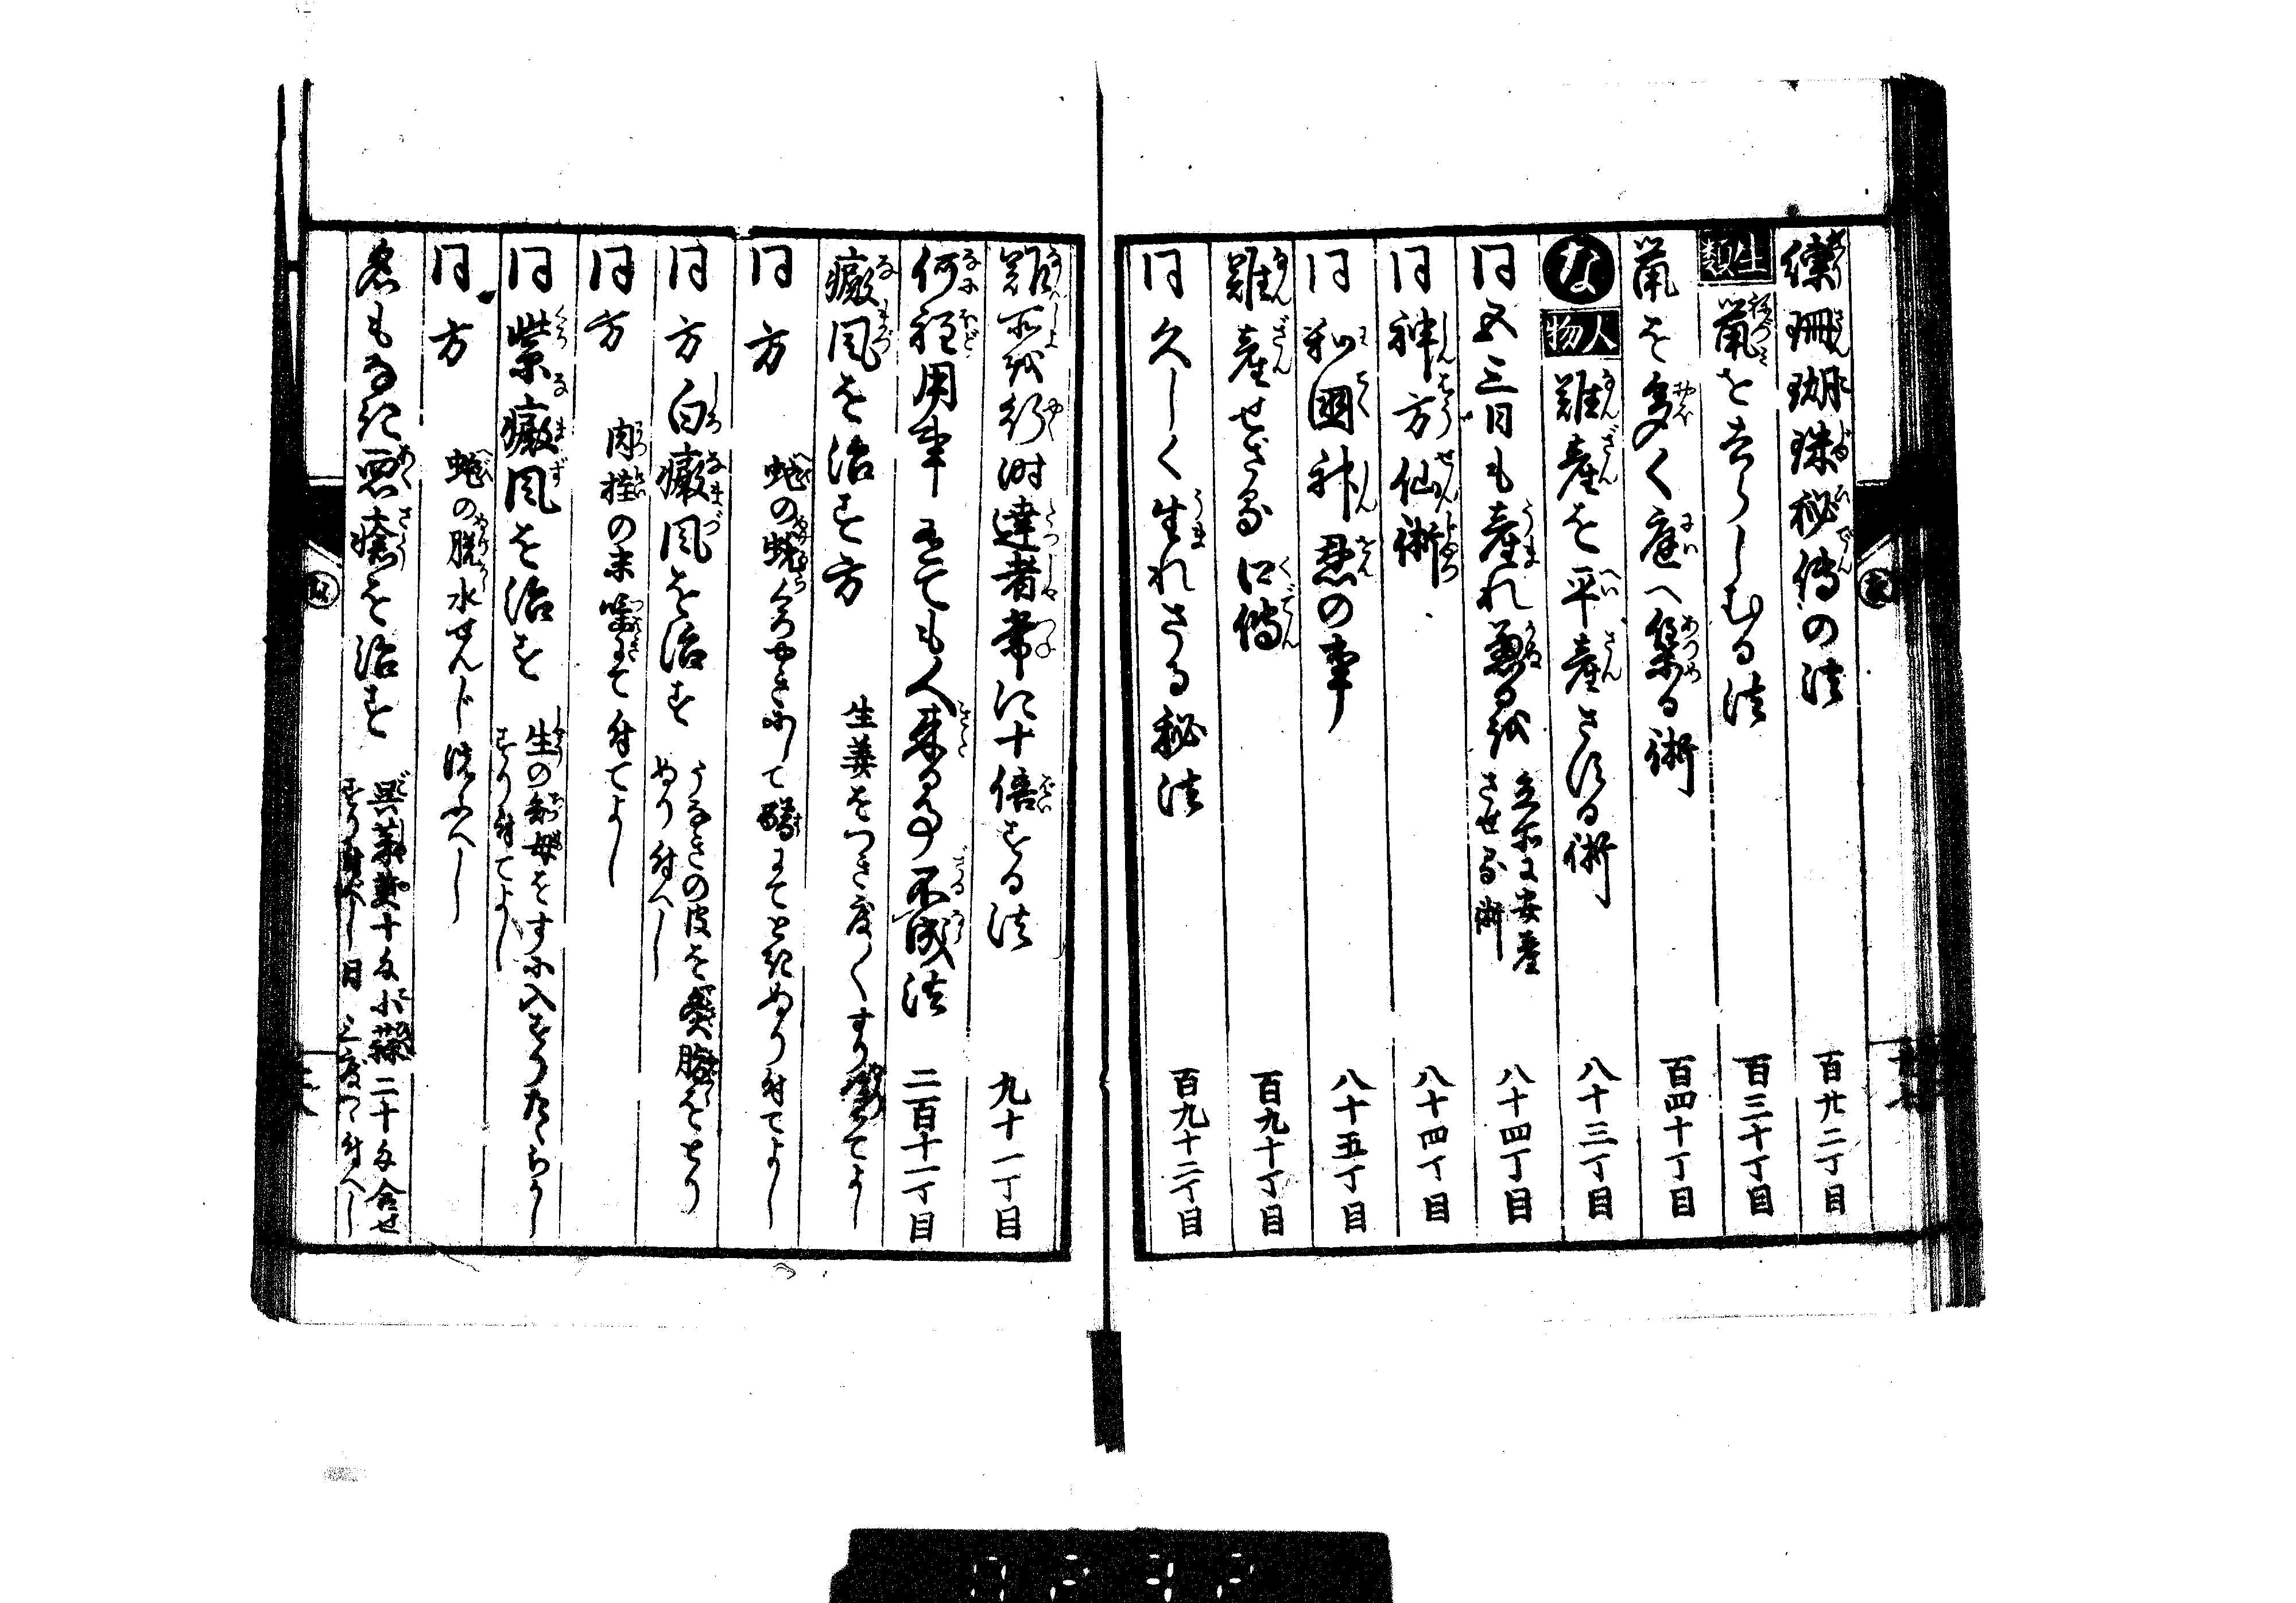 珊瑚珠秘傳の法 百廿二丁目
生類 鼠を去らしむる法 百三十丁目
鼠を多く庭へ集る術 百四十丁目
な 人物 難産を平産さする術 八十三丁目
同 五三日も産れ兼るを 立所に安産させる術 八十四丁目
同 神方仙術 八十四丁目
同 和國神思の事 八十五丁目
難産せざる口傳 百九十丁目
同 久しく生れさる秘法 百九十二丁目
難所を行時達者常に十倍する法 九十一丁目
何程用事有ても人来る事不成法 二百十一丁目
癜風を治す方 生姜をつき度〱すり塗てよし
同方 蛇の蛻くろやきにして醋にてときぬり付てよし
同方 白癜風を治す うなきの皮を炙脂をとりぬり付へし
同方 肉桂の末唾にて付てよし
同 紫癜風を治す 生の知母をすに入すりたらかしすり付てよし
同方 蛇の脱水せんじ洗ふへし
名もなき悪瘡を治す 呉茱萸十匁小蘇二十匁合せすり付へし日三度つゝ付へし